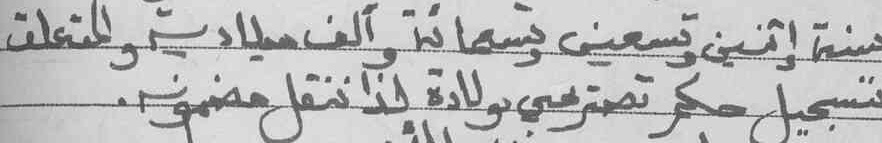 سنة واثنين وتسعين وتسعمائة وألف ميلادية والمتعلق
بتسجيل حكم تصريحي بولادة لذا ننقل مضمونه.